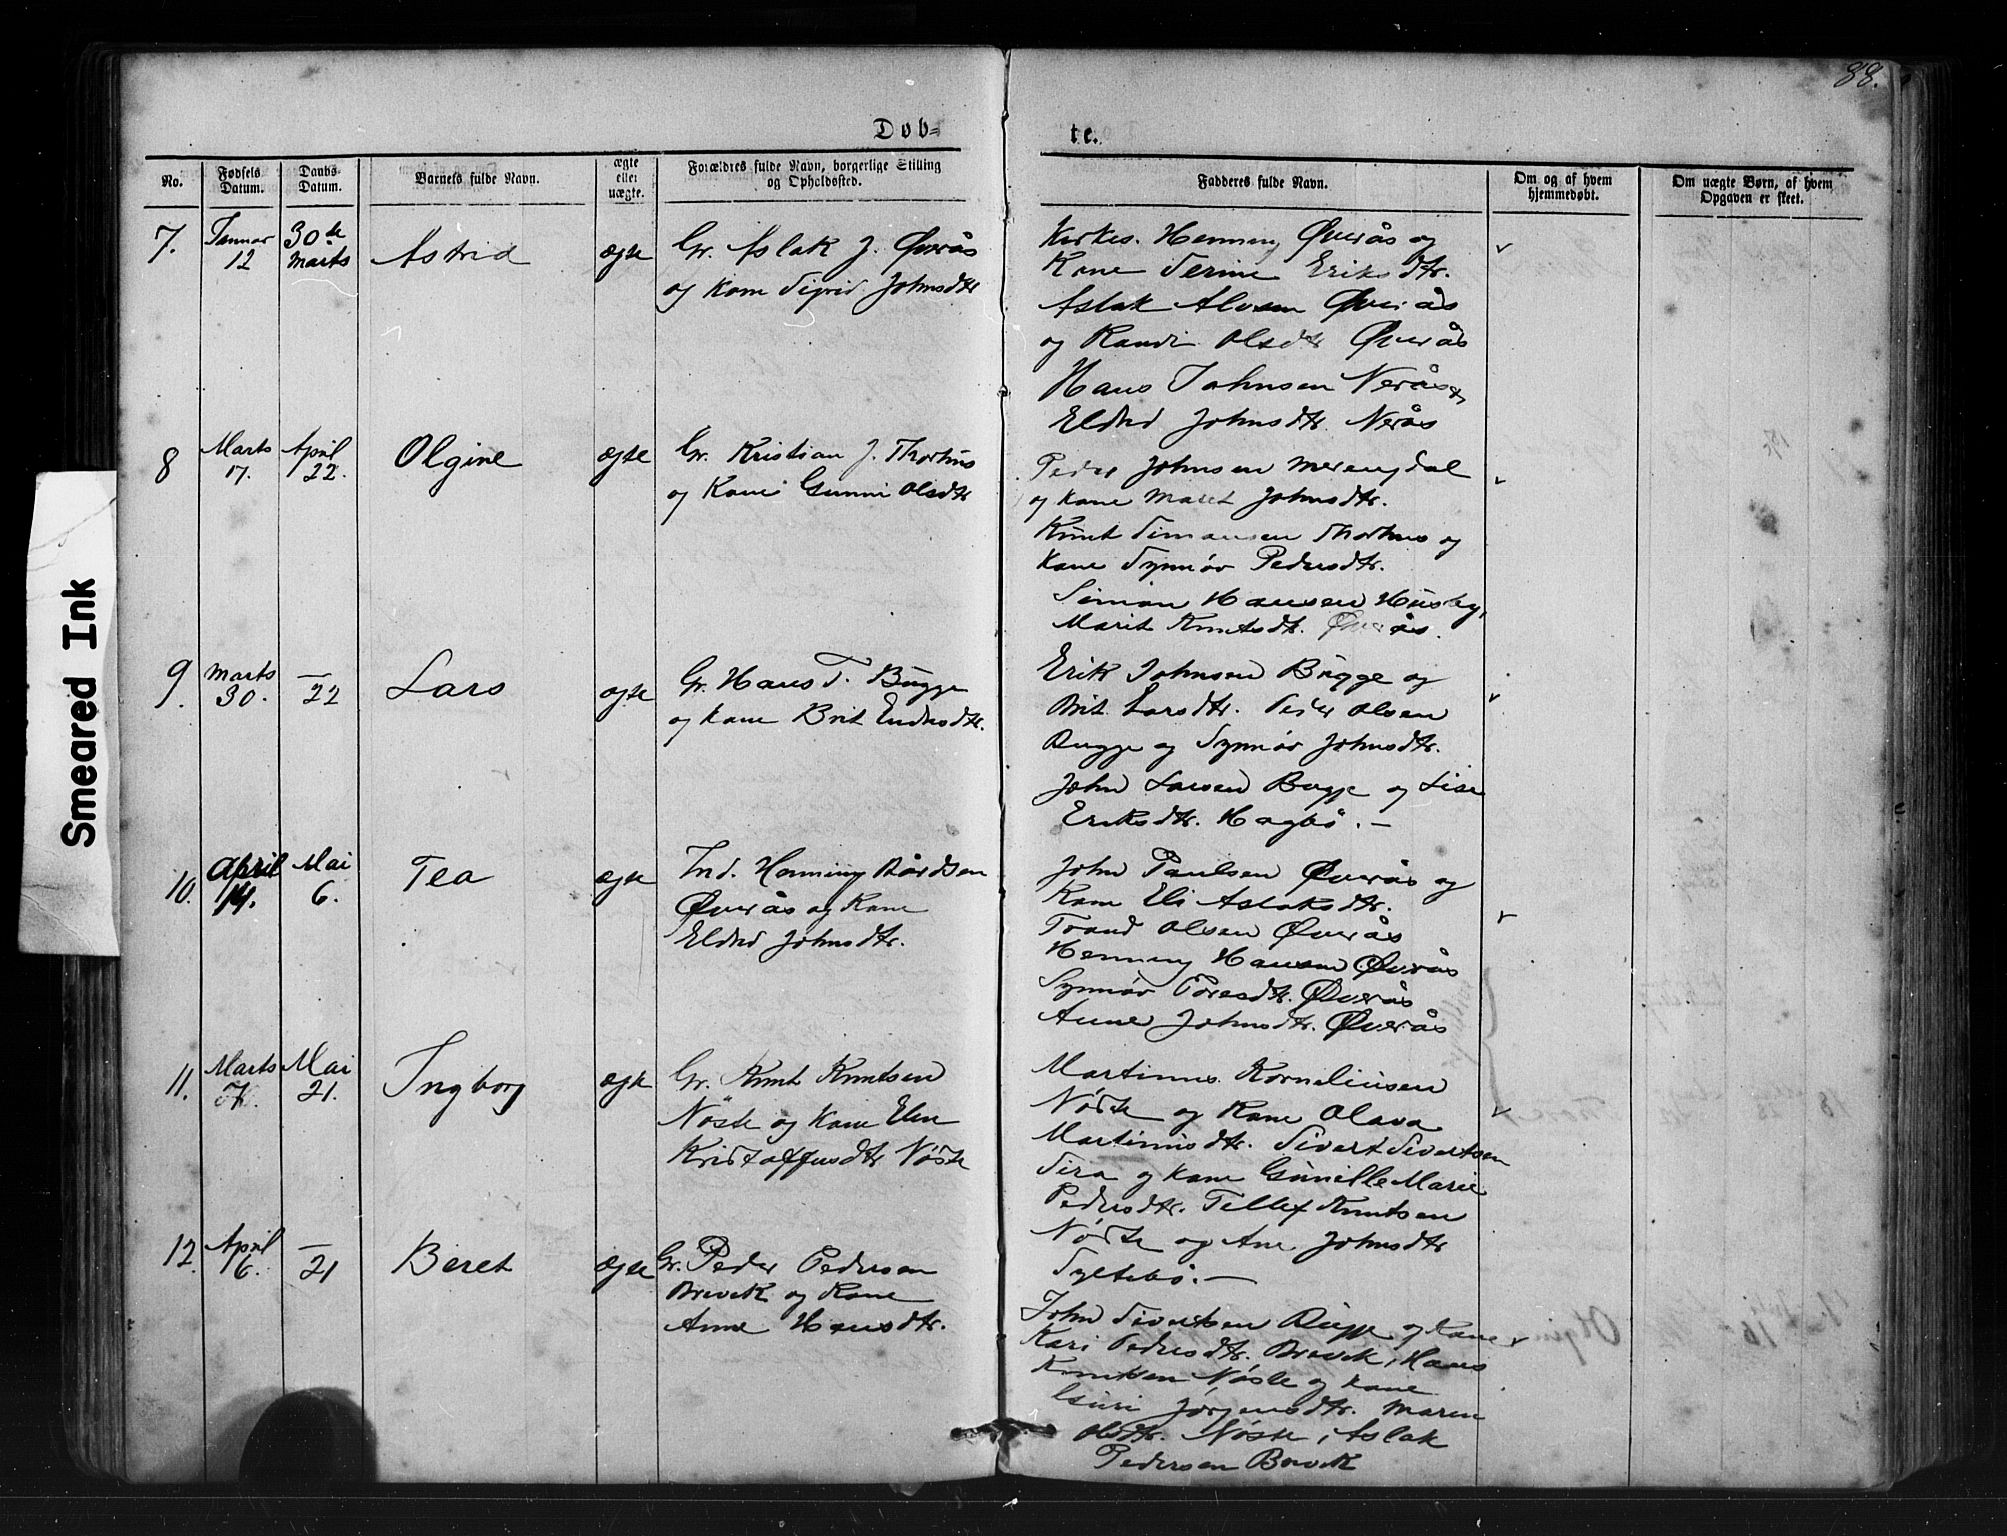 88.
Døb=
te.
No.
Fødsels
Datum.
Daabs-
Datum.
Barnets fulde Navn.
ægte
eller
uægte.
Forældres fulde Navn, borgerlige Stilling
og Opholdssted.
Fadderes fulde Navn.
Om og af hvem
hjemmedøbt.
Om uægte Børn, af hvem
Opgaven er skeet.
7.
Januar
12
30te
Marts
Astrid
ægte
Gr. Aslak J. Øverås
og Kone Sigrid Johnsdtr
Kirkes. Henning Øverås og
Kone Serine Eriksdtr.
Aslak Øverås
og Randi Olsdtr Øverås
Hans Johnsen Nerås
Eldrid Johnsdtr. Nerås
8
Marts
17.
April
22.
Olgine
ægte
Gr. Kristian J. Thorhus
og Kone Gunni Olsdtr
Peder Johnsen Merengdal
og Kone Marit Johnsdtr.
Knut Simonsen Thorhus og
Kone Synnøv Pedersdtr.
Simon Hansen Husby,
Marit Knutsdtr. Øverås.
9
Marts
30.
—
22
Lars
ægte
Gr. Hans T. Bugge
og Kone Brit Endresdtr.
Erik Johnsen Bugge og
Brit Larsdtr. Peder Olsen
Bugge og Synnøv Johnsdtr.
John Larsen Bugge og Lise
Eriksdtr. Hagbø. —
10.
April
14.
Mai
6.
Tea
ægte
Ind. Henning Bårdsen
Øverås og Kone
Eldrid Johnsdtr.
John Paulsen Øverås og
Kone Eli Aslaksdtr.
Trond Olsen Øverås
Henning Hansen Øverås
Synnøv Toresdtr. Øverås
Anne Johnsdtr. Øverås
11.
Marts
Mai
21.
Ingborg
ægte
Gr. Knut Knutsen
Nöste og Kone Elen
Kristoffersdtr Nöste
Martinus Korneliusen
Nöste og Kone Olava
Martinusdtr. Sivert Sivertsen
Sira og Kone Gunille Marie
Pedersdtr. Tellef Knutsen
Nöste og Ane Johnsdtr
Syltebö. —
12.
April
16.
—
21
Beret
ægte
Gr. Peder Pedersen
Brevik og Kone
Anne Hansdtr.
John Sivertsen Bugge og Kone
Kari Pedersdtr. Brevik, Hans
Knutsen Nöste og Kone
Guri Jørgensdtr. Maren
Olsdtr. Nöste, Aslak
Pedersen Brevik
Smeared Ink